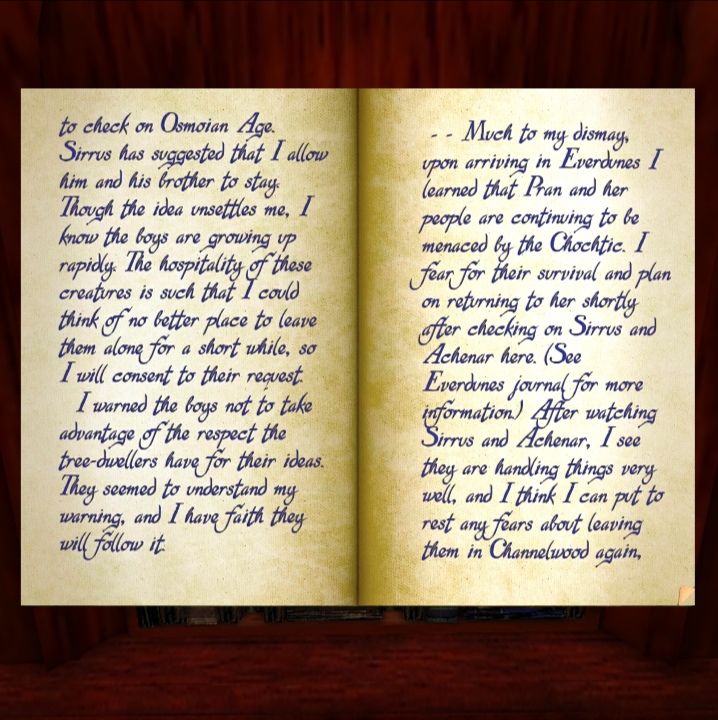 to check on Osmoian Age.
Sirrus has suggested that I allow
him and his brother to stay.
Though the idea unsettles me, I
know the boys are growing up
rapidly. The hospitality of these
creatures is such that I could
think of no better place to leave
them alone for a short while, so
I will consent to their request.
I warned the boys not to take
advantage of the respect the
tree-dwellers have for their ideas.
They seemed to understand my
warning, and I have faith they
will follow it.
-- Much to my dismay,
upon arriving in Everdunes I
learned that Pran and her
people are continuing to be
menaced by the Chochtic. I
fear for their survival and plan
on returning to her shortly
after checking on Sirrus and
Achenar here. (See
Everdunes journal for more
information.) After watching
Sirrus and Achenar, I see
they are handling things very
well, and I think I can put to
rest any fears about leaving
them in Channelwood again,